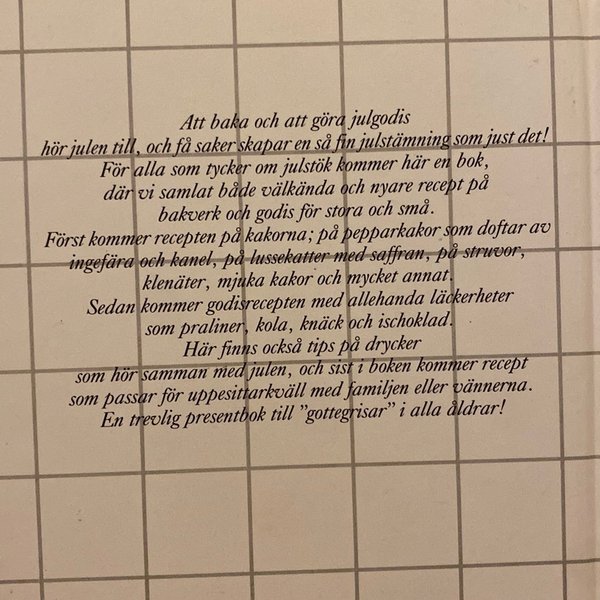 Att baka och att göra julgodis
hör julen till, och få saker skapar en så fin julstämning som just det!
För alla som tycker om julstök kommer här en bok,
där vi samlat både välkända och nyare recept på
bakverk och godis för stora och små.
Först kommer recepten på kakorna; på pepparkakor som doftar av
ingefära och kanel, på lussekatter med saffran, på struvor,
klenäter, mjuka kakor och mycket annat.
Sedan kommer godisrecepten med allehanda läckerheter
som praliner, kola, knäck och ischoklad.
Här finns också tips på drycker
som hör samman med julen, och sist i boken kommer recept
som passar för uppesittarkväll med familjen eller vännerna.
En trevlig presentbok till ”gottegrisar” i alla åldrar!